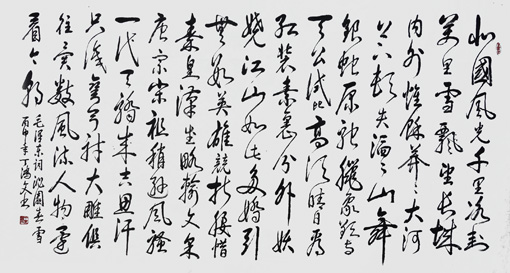 北國風光千里冰封
萬里雪飄望長城
内外惟餘莽々大河
上下頓失滔々山舞
銀蛇原馳蠟象欲与
天公試比高須晴日看
紅裝素裹分外妖
嬈江山如此多嬌引
無數英雄競折腰惜
秦皇漢武略輸文采
唐宗宋祖稍遜風騷
一代天驕成吉思汗
只識彎弓射大雕俱
往矣數風流人物還
看今朝
毛澤東詞沁園春雪
丙申年丁